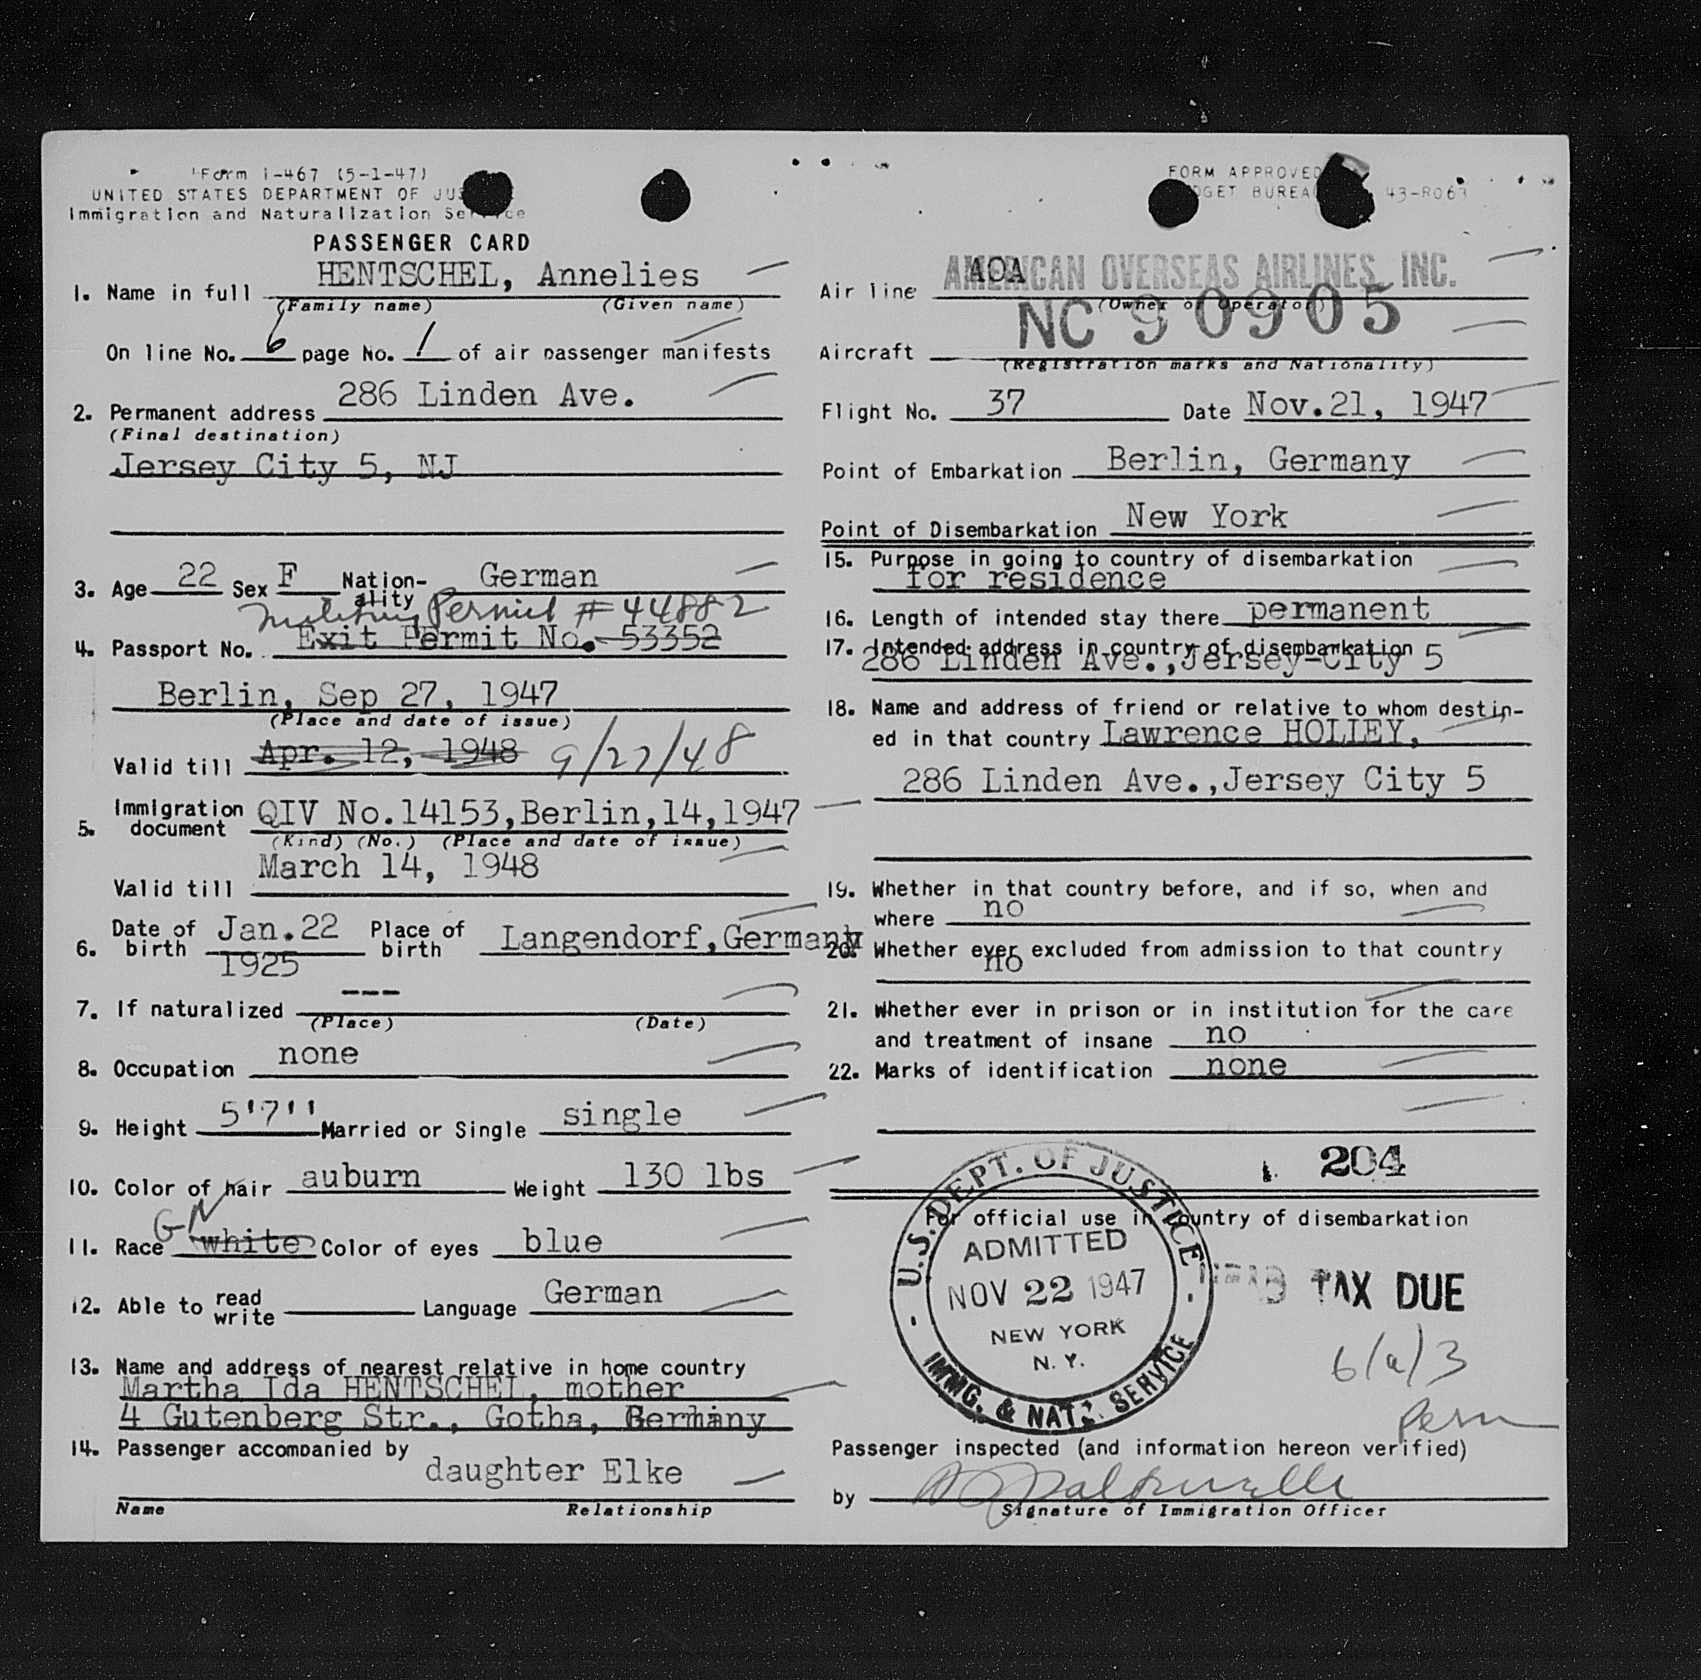 Form I-467 (5-1-47)
UNITED STATES DEPARTMENT OF JUS
Immigration and Naturalization Service
PASSENGER CARD
1. Name in full HENTSCHEL, Annelies
(Family name) (Given name)
On line No. 6 page No. 1 of air passenger manifests
2. Permanent address 286 Linden Ave.
(Final destination)
Jersey City 5, NJ
3. Age 22 Sex F Nation-ality German
Military Permit # 44882
4. Passport No. Exit Permit No. 53352
Berlin, Sep 27, 1947
(Place and date of issue)
Valid till Apr. 12, 1948 9/27/48
5. Immigration document QIV No.14153,Berlin,14,1947
(Kind) (No.) (Place and date of issue)
March 14, 1948
Valid till
6. Date of birth Jan.22 1925 Place of birth Langendorf,Germany
7. If naturalized ---
(Place) (Date)
8. Occupation none
9. Height 5'7'' Married or Single single
10. Color of hair auburn Weight 130 lbs
11. Race white Color of eyes blue
12. Able to read write Language German
13. Name and address of nearest relative in home country
Martha Ida HENTSCHEL, mother
4 Gutenberg Str., Gotha, Germany
14. Passenger accompanied by
daughter Elke
Name Relationship
FORM APPROVED
DGET BUREA 43-R063
Air line AOA AMERICAN OVERSEAS AIRLINES, INC.
(Owner or Operator)
NC 90905
Aircraft
(Registration marks and Nationality)
Flight No. 37 Date Nov.21, 1947
Point of Embarkation Berlin, Germany
Point of Disembarkation New York
15. Purpose in going to country of disembarkation
for residence
16. Length of intended stay there permanent
17. Intended address in country of disembarkation
286 Linden Ave.,Jersey-City 5
18. Name and address of friend or relative to whom destin-
ed in that country Lawrence HOLLEY,
286 Linden Ave.,Jersey City 5
19. Whether in that country before, and if so, when and
where no
20. Whether ever excluded from admission to that country
no
21. Whether ever in prison or in institution for the care
and treatment of insane no
22. Marks of identification none
204
For official use in country of disembarkation
U.S. DEPT. OF JUSTICE
ADMITTED
NOV 22 1947
NEW YORK
N. Y.
IMMG. & NATZ. SERVICE
HEAD TAX DUE
6/a/3
Perm
Passenger inspected (and information hereon verified)
by
Signature of Immigration Officer